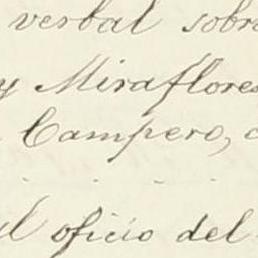 verbal sobre
y Miraflores
Campero,
oficio del